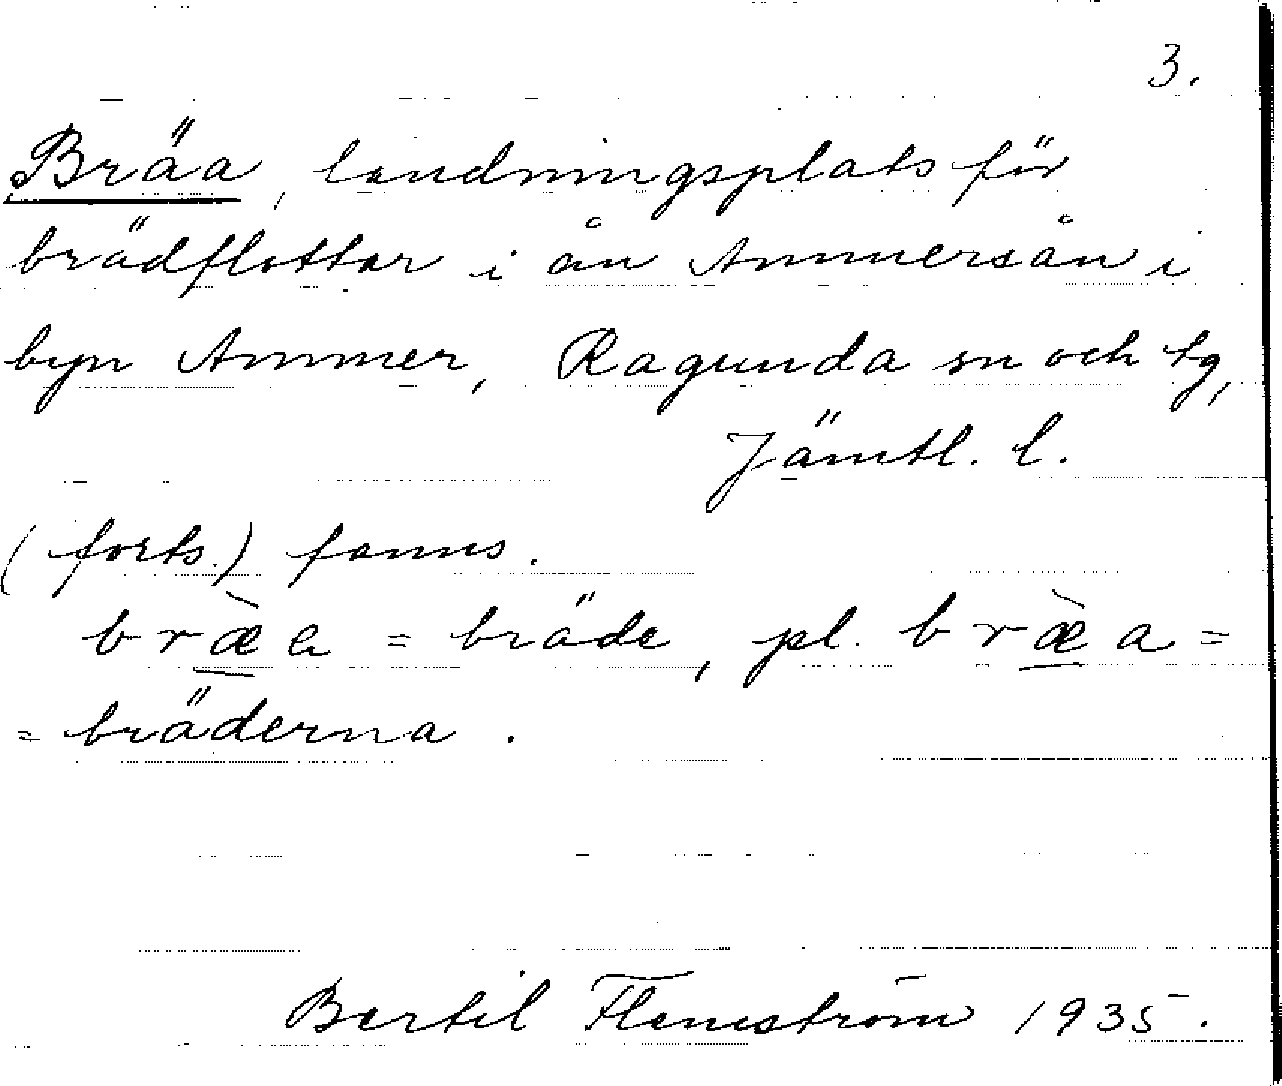 3.
Bräa, landningsplats för
brädflottar i ån Ammerån i
byn Ammer, Ragunda sn och tg,
Jämtl. l.
(forts.) fanns.
bræ̀a = bräde, pl. bræ̀a =
= bräderna.
Bertil Flemström 1935.